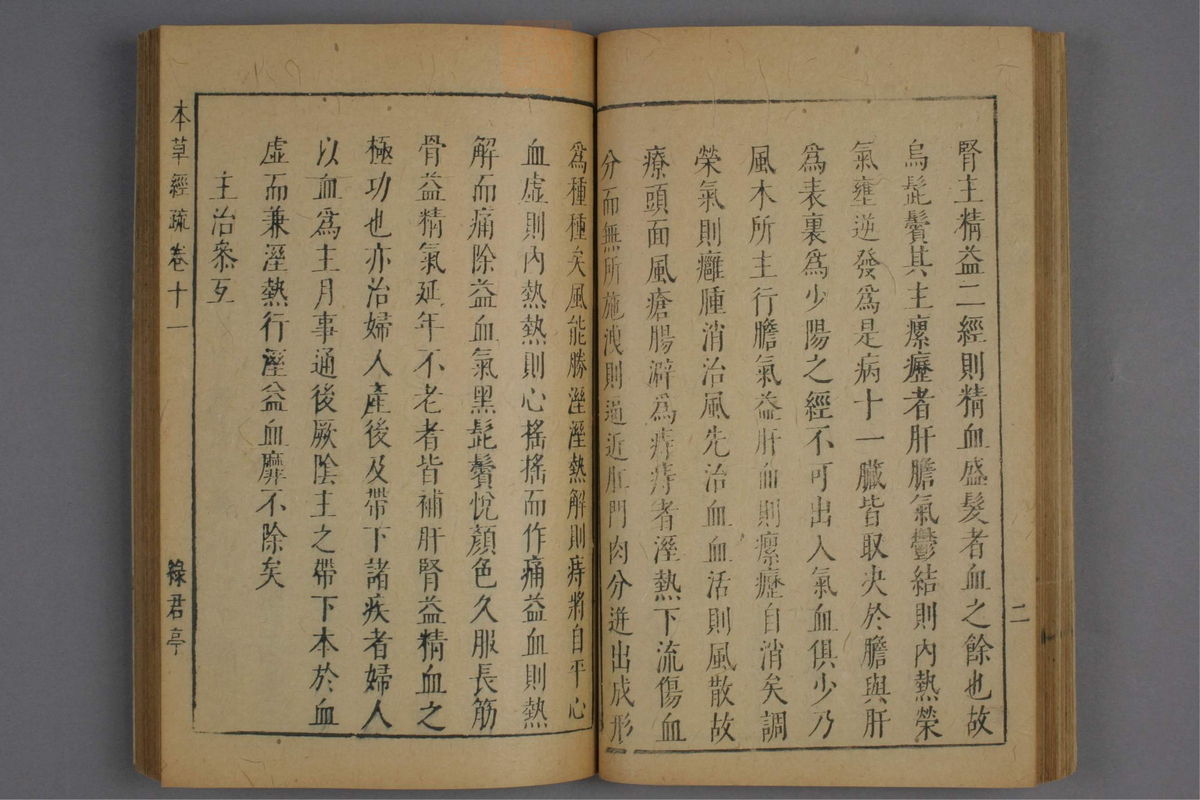 腎主精益二經則精血盛髮者血之餘也故
烏髭鬢其主瘰癧者肝膽氣鬱結則內熱榮
氣壅逆發爲是病十一臟皆取决於膽與肝
爲表裏爲少陽之經不可出入氣血俱少乃
風木所主行膽氣益肝血則瘰癧自消矣調
榮氣則癰腫消治風先治血血活則風散故
療頭面風瘡腸澼爲痔痔者溼熱下流傷血
分而無所施洩則逼近肛門肉分迸出成形
二
爲種種矣風能勝溼溼熱解則痔將自平心
血虛則內熱熱則心搖搖而作痛益血則熱
解而痛除益血氣黑髭鬢悅顏色久服長筋
骨益精氣延年不老者皆補肝腎益精血之
極功也亦治婦人產後及帶下諸疾者婦人
以血爲主月事通後厥陰主之帶下本於血
虛而兼溼熱行溼益血靡不除矣
主治叅互
本草經疏卷十一
綠君亭